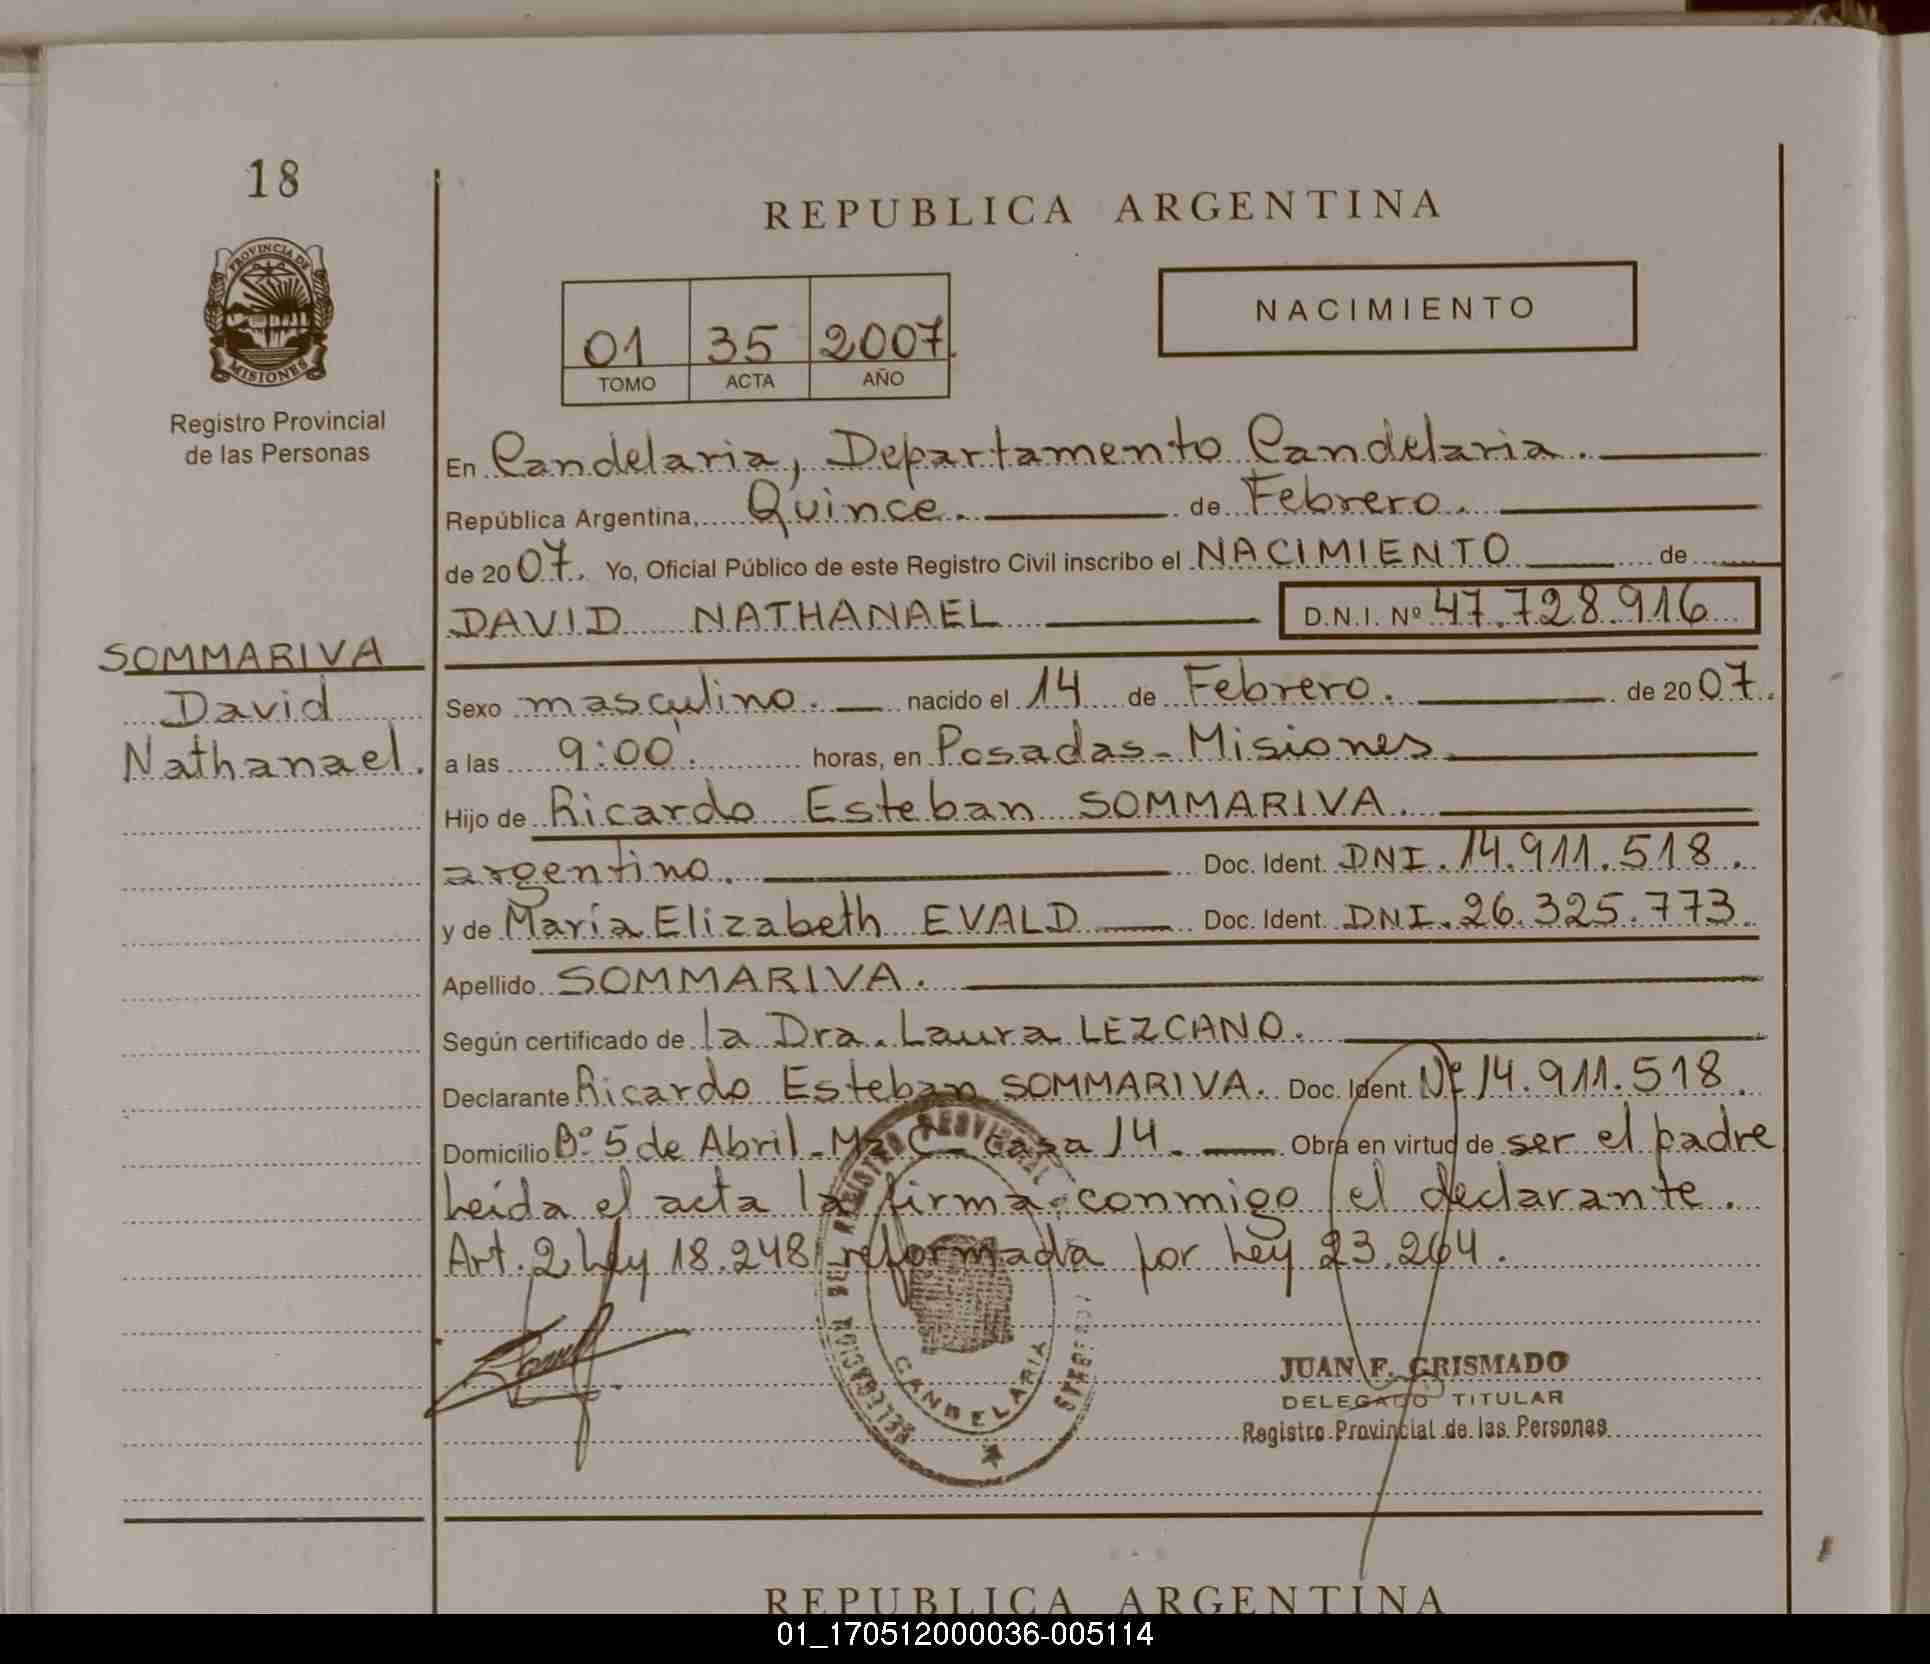 18
PROVINCIA DE
MISIONES
Registro Provincial
de las Personas
SOMMARIVA
David
Nathanael.
REPUBLICA ARGENTINA
01 35 2007
TOMO ACTA AÑO
NACIMIENTO
En Candelaria, Departamento Candelaria.
República Argentina, Quince. de Febrero.
de 2007. Yo, Oficial Público de este Registro Civil inscribo el NACIMIENTO de
DAVID NATHANAEL D.N.I. Nº 47.728.916
Sexo masculino. nacido el 14 de Febrero. de 2007.
a las 9:00. horas, en Posadas - Misiones
Hijo de Ricardo Esteban SOMMARIVA.
argentino. Doc. Ident. DNI. 14.911.518.
y de María Elizabeth EVALD Doc. Ident. DNI. 26.325.773.
Apellido SOMMARIVA.
Según certificado de la Dra. Laura LEZCANO.
Declarante Ricardo Esteban SOMMARIVA. Doc. Ident. Nº 14.911.518.
Domicilio Bº 5 de Abril - Mz C - Casa 14. Obra en virtud de ser el padre
Leída el acta la firma conmigo el declarante.
Art. 2 Ley 18.248 reformada por Ley 23.264.
DELEGACION DEL REGISTRO PROVINCIAL
CANDELARIA
JUAN F. GRISMADO
DELEGADO TITULAR
Registro Provincial de las Personas
REPUBLICA ARGENTINA
01_170512000036-005114